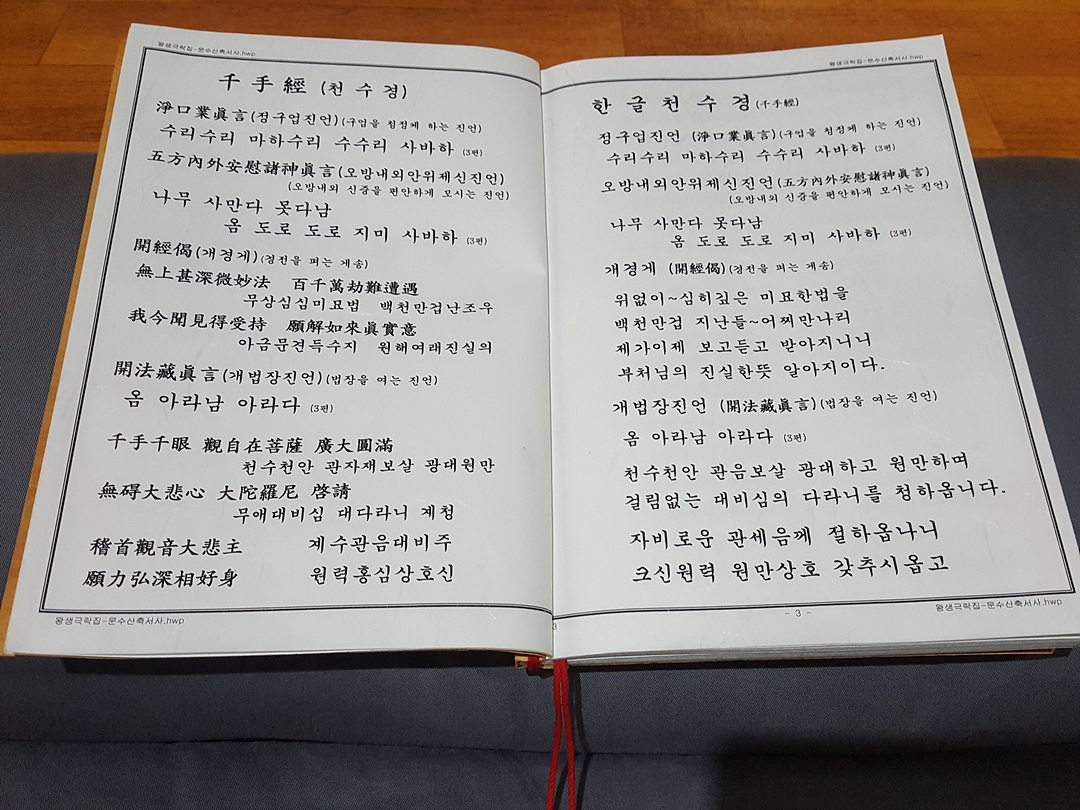 왕생극락집-문수산축서사.hwp
千手經 (천수경)
淨口業眞言(정구업진언)(구업을 청정케 하는 진언)
수리수리 마하수리 수수리 사바하 (3편)
五方內外安慰諸神眞言(오방내외안위제신진언)
(오방내외 신중을 편안하게 모시는 진언)
나무 사만다 못다남
옴 도로 도로 지미 사바하 (3편)
開經偈(개경게)(경전을 펴는 게송)
無上甚深微妙法 百千萬劫難遭遇
무상심심미묘법 백천만겁난조우
我今聞見得受持 願解如來眞實意
아금문견득수지 원해여래진실의
開法藏眞言(개법장진언)(법장을 여는 진언)
옴 아라남 아라다 (3편)
千手千眼 觀自在菩薩 廣大圓滿
천수천안 관자재보살 광대원만
無碍大悲心 大陀羅尼 啓請
무애대비심 대다라니 계청
稽首觀音大悲主 계수관음대비주
願力弘深相好身 원력홍심상호신
왕생극락집-문수산축서사.hwp
3
왕생극락집-문수산축서사.hwp
한글천수경(千手經)
정구업진언 (淨口業眞言)(구업을 청정케 하는 진언)
수리수리 마하수리 수수리 사바하 (3편)
오방내외안위제신진언(五方內外安慰諸神眞言)
(오방내외 신중을 편안하게 모시는 진언)
나무 사만다 못다남
옴 도로 도로 지미 사바하 (3편)
개경게 (開經偈)(경전을 펴는 게송)
위없이~심히깊은 미묘한법을
백천만겁 지난들~어찌만나리
제가이제 보고듣고 받아지니니
부처님의 진실한뜻 알아지이다.
개법장진언 (開法藏眞言)(법장을 여는 진언)
옴 아라남 아라다 (3편)
천수천안 관음보살 광대하고 원만하며
걸림없는 대비심의 다라니를 청하옵니다.
자비로운 관세음께 절하옵나니
크신원력 원만상호 갖추시옵고
- 3 -
왕생극락집-문수산축서사.hwp